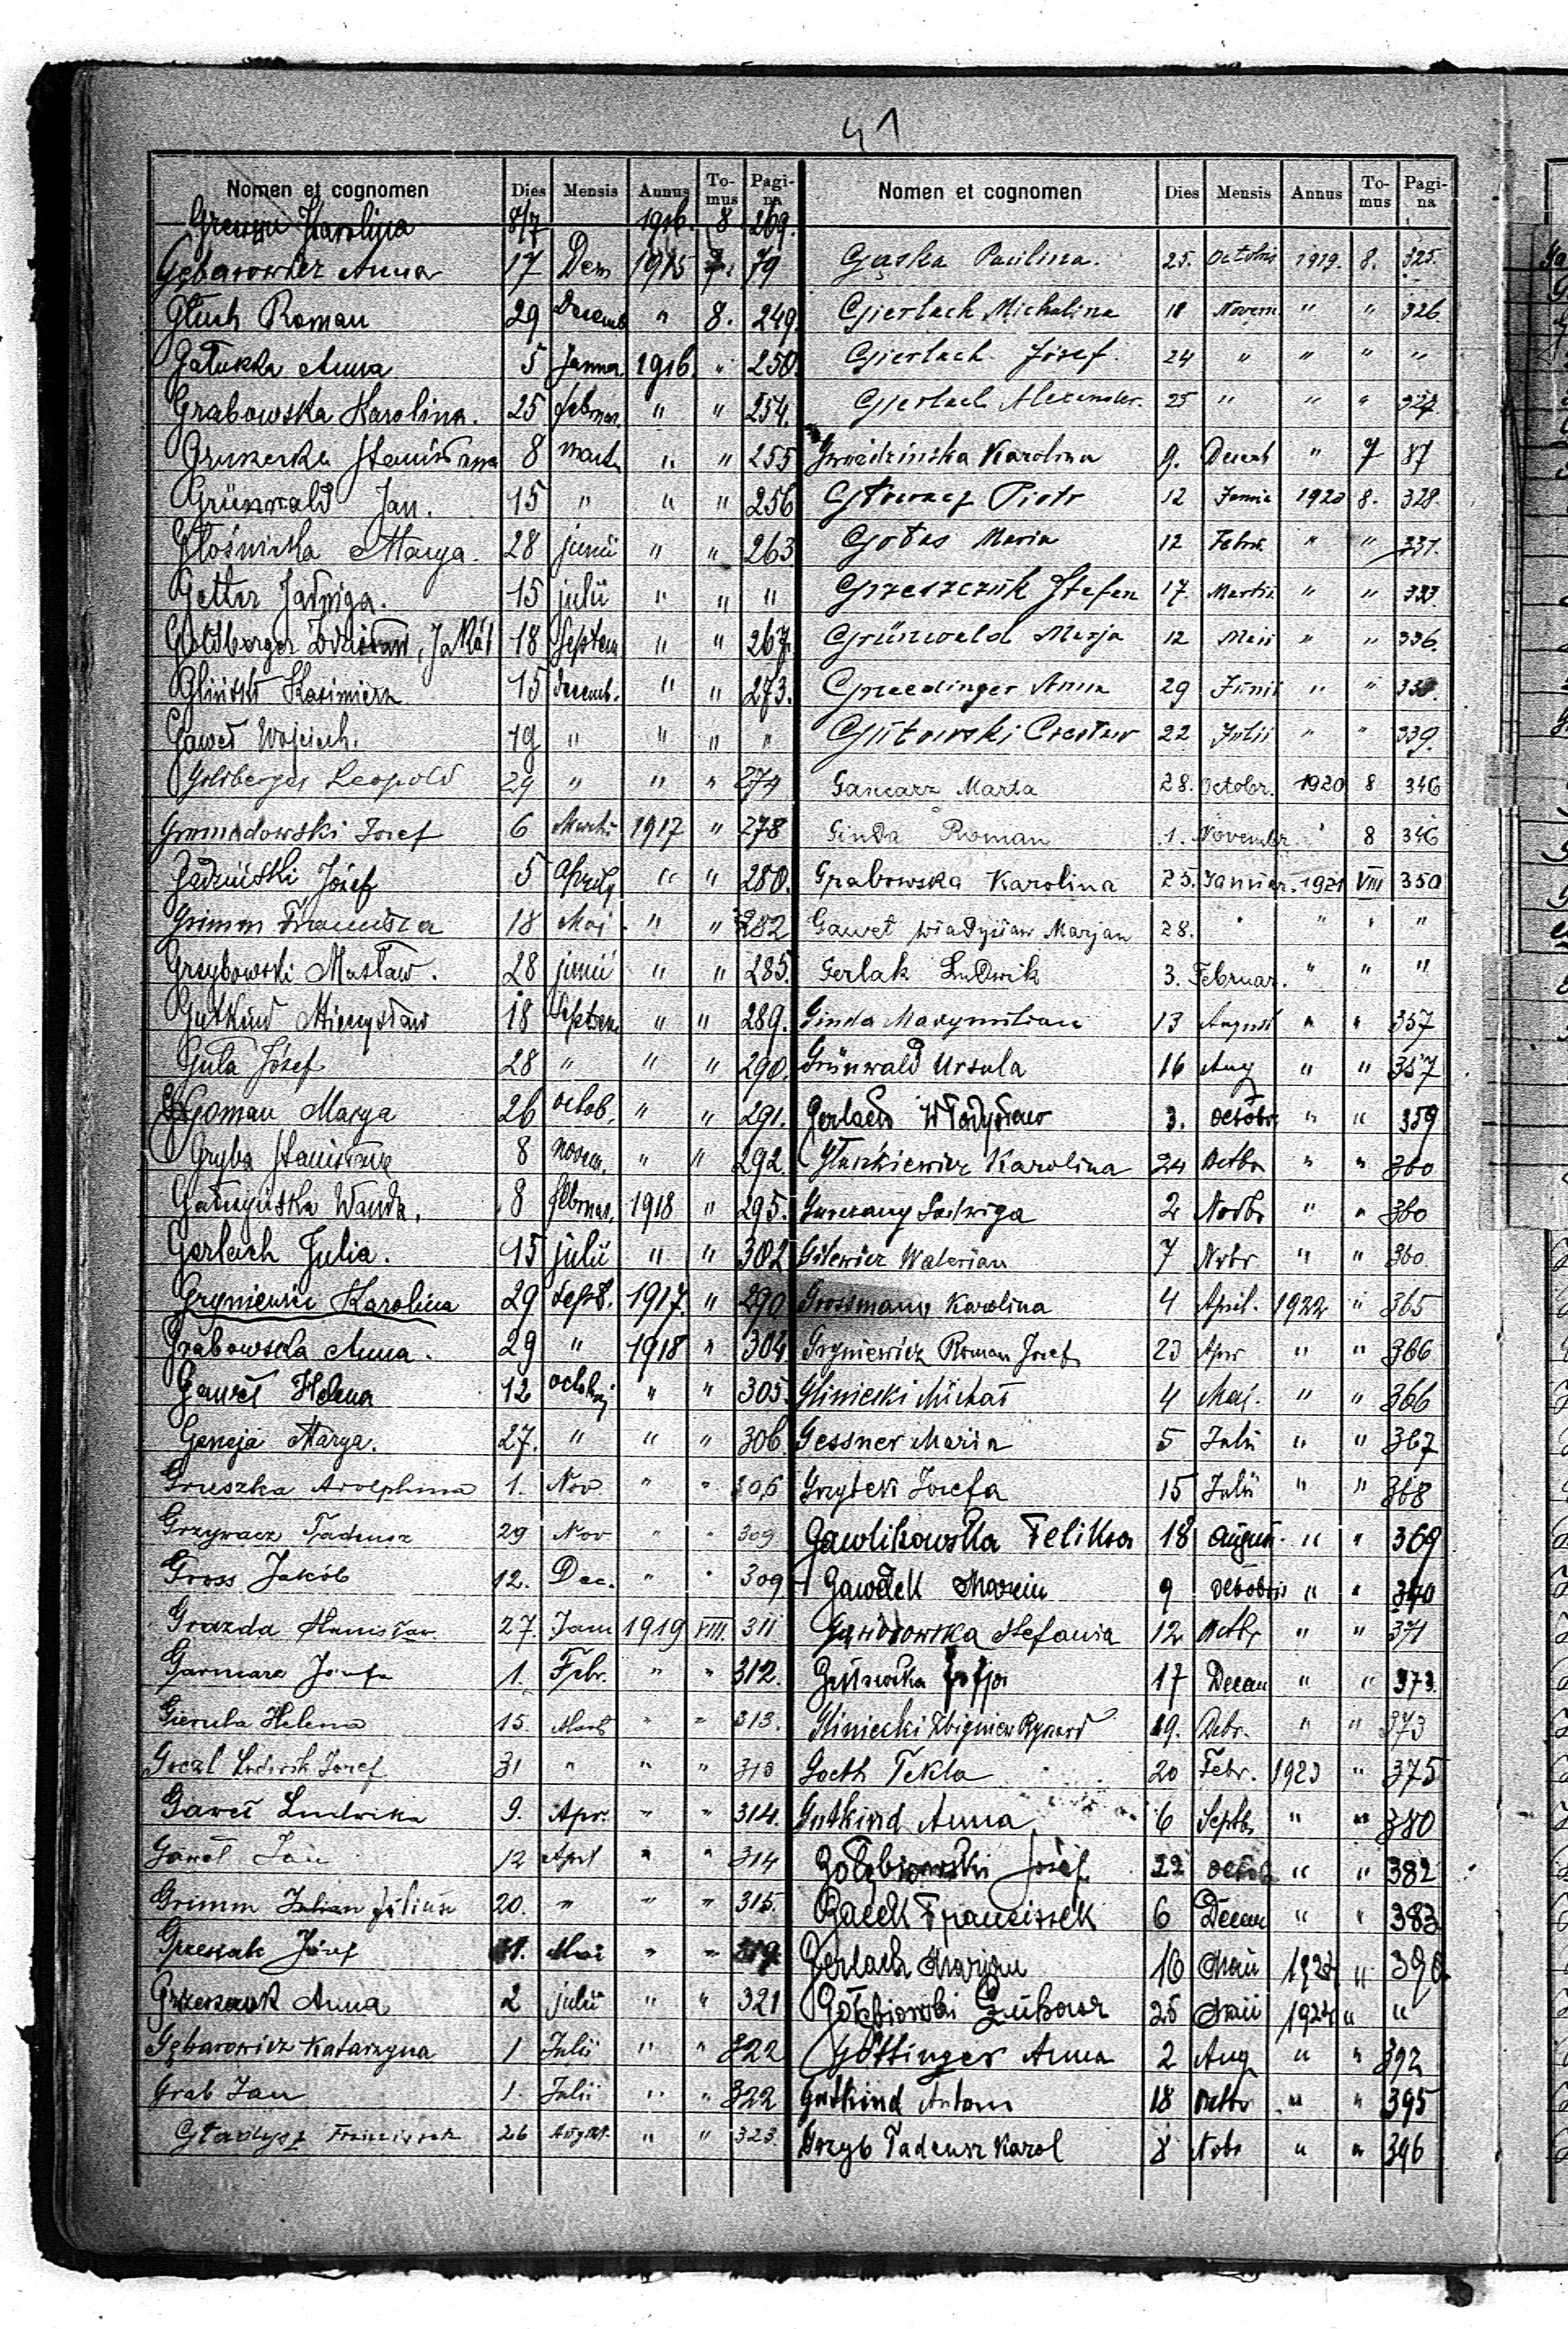 41
Nomen et cognomen Dies Mensis Annus To-mus Pagi-na
Karolina 8/7 1916. 8 269.
Gębarowicz Anna 17 Dem 1915 7. 79
Głuch Roman 29 Decemb " 8. 249
Gałuszka Anna 5 Janna. 1916. " 250
Grabowska Karolina. 25 februar. " " 254.
8 Marti " " 255
Grünwald Jan. 15 " " " 256
Głośnicka Marya. 28 junii " " 263
Getter Jadwiga. 15 julii " " "
Goldberger Zdzisław, Jakób 18 Septem " " 267.
Gliński Kazimierz 15 decemb. " " 273.
Gaweł Wojciech. 19 " " " "
Goldberger Leopold 29 " " " 274
Gromadowski Josef 6 Martii 1917 " 278
Gadziński Józef 5 Aprilis " " 280.
Grimm Franciszka 18 Maj. " " 282
Grzybowski Wacław. 28 junii " " 285.
Gutkind Mieczysław 18 Septem " " 289.
Guła Józef 28 " " " 290.
Goman Marya 26 octob. " " 291.
Gryba Stanisław 8 novem. " " 292
Gałuszyńska Wanda. 8 februar. 1918 " 295.
Gerlach Julia. 15 julii " " 302
Gryniewicz Karolina 29 Septb. 1917. " 290
Grabowska Anna. 29 " 1918 " 304
Gaweł Helena 12 octobrj " " 305.
Geneja Marya. 27. " " " 306.
Gruszka Adolphina 1. Nov " " 306
Grzywacz Tadeusz 29 Nov " " 309
Gross Jakób 12. Dec. " " 309
Grazda Stanisław 27. Jann 1919 VIII. 311
Garncarz Józefa 1. Febr. " " 312.
Gierula Helena 15. Marti " " 313.
Goczł Ludwik Josef 31 " " " 313
Gaweł Ludwika 9. Apr. " " 314.
Gaweł Jan 12 April " " 314
Grimm Julian Juliusz 20. " " " 315.
Grzesiak Józef 31. Mai " " 319
Grzeszczuk Anna 2 julii " " 321
Gębarowicz Katarzyna 1 Julii " " 322
Grab Jan 1. Julii " " 322
Gładysz Franciszek 26 August. " " 323.
Nomen et cognomen Dies Mensis Annus To-mus Pagi-na
Gąska Paulina. 25. Octobris 1919. 8. 325.
Gierlach Michalina 18 Novem " " 326
Gierlach Józef 24 " " " "
Gierlach Alexander. 25 " " " 327
Gwoździńska Karolina 9. Decemb " 7 87
Głowacz Piotr 12 Januar 1920 8. 328.
Gołas Maria 12 Febru. " " 331.
Grzeszczuk Stefan 17. Martii " " 333.
Grünwald Marja 12 Maii " " 336.
Anna 29 Junii " "
Gutowski Czesław 22 Julii " " 339.
Gancarz Marta 28. Octobr. 1920 8 346
Ginda Roman 1. Novembr " 8 346
Grabowska Karolina 25. Januar. 1921 VIII 350
Gaweł Władysław Marjan 28. " " " "
Gerlak Ludwik 3. Februar. " " "
Ginda Maxymilian 13 August " " 357
Grünwald Ursula 16 Aug " " 357
Gerlach Władysław 3. Octobr " " 359
Głuszkiewicz Karolina 24 Octbr " " 360
Jadwiga 2 Novbr " " 360
Gilewicz Walerian 7 Nvbr " " 360
Grossmann Karolina 4 April. 1922 " 365
Gryniewicz Roman Josef 23 Apr " " 366
Gliniecki Michał 4 Maj. " " 366
Gessner Maria 5 Julii " " 367
Grzybek Józefa 15 Julii " " 368
Gawlikowska Feliksa 18 August. " " 369
Gawełek Marcin 9 Octobris " " 370
Gaworowska Stefania 12 Octbr " " 371
Zofja 17 Decem " " 373.
Gliniecki Zbigniew Ryszard 19. Debr. " " 373
Goeth Tekla 20 Febr. 1923 " 375
Gutkind Anna 6 Septbr " " 380
Gołębiowski Józef 22 Octob " " 382
Gacek Franciszek 6 Decem " " 383
Gerlach Marian 16 Maii 1924 " 390
Gołębiowski 25 Maii 1924 " "
Göttinger Anna 2 Aug " " 392
Gutkind Antoni 18 Octbr " " 395
Grzyb Tadeusz Karol 8 Nvbr " " 396